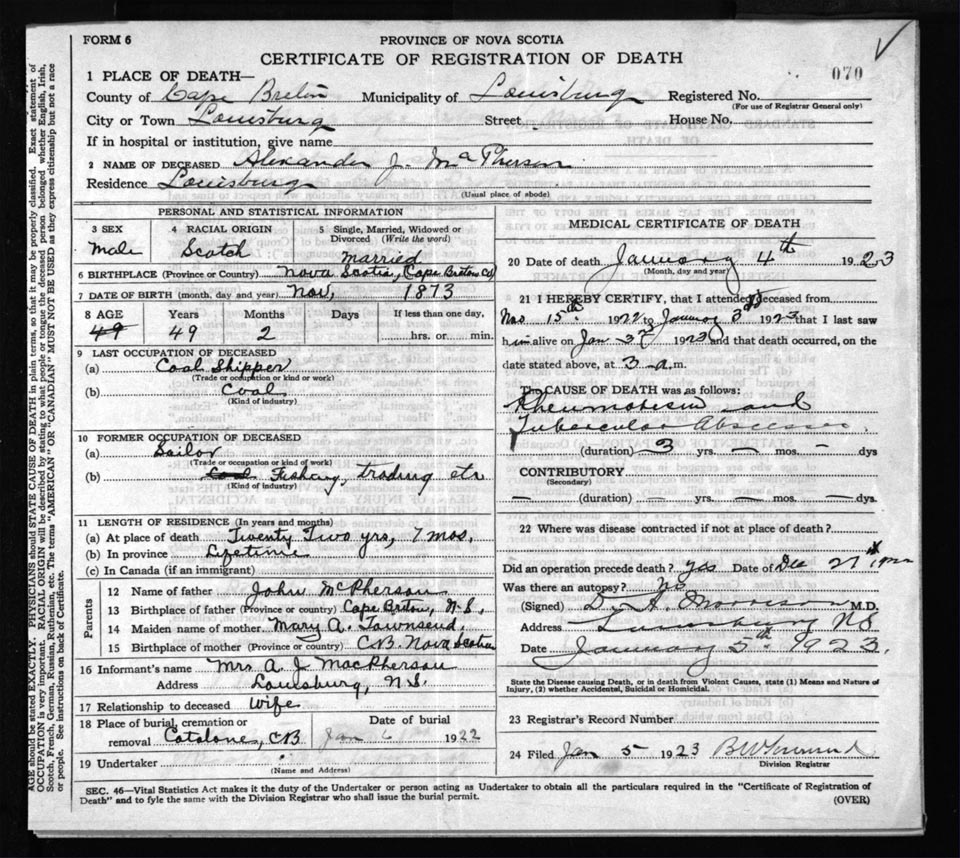 FORM 6
PROVINCE OF NOVA SCOTIA
CERTIFICATE OF REGISTRATION OF DEATH
070
1 PLACE OF DEATH—
County of Cape Breton Municipality of Louisburg Registered No.
(For use of Registrar General only)
City or Town Louisburg Street House No.
If in hospital or institution, give name
2 NAME OF DECEASED Alexander J. McPherson
Residence Louisburg
(Usual place of abode)
PERSONAL AND STATISTICAL INFORMATION
3 SEX 4 RACIAL ORIGIN 5 Single, Married, Widowed or Divorced (Write the word)
Male Scotch Married
6 BIRTHPLACE (Province or Country) Nova Scotia, Cape Breton Co
7 DATE OF BIRTH (month, day and year) Nov, 1873
8 AGE Years Months Days If less than one day,
49 49 2 hrs. or min.
9 LAST OCCUPATION OF DECEASED
(a) Coal Shipper
(Trade or occupation or kind or work)
(b) Coal
(Kind of industry)
10 FORMER OCCUPATION OF DECEASED
(a) Sailor
(Trade or occupation or kind of work)
(b) Coal Fishing, trading etc
(Kind of industry)
11 LENGTH OF RESIDENCE (In years and months)
(a) At place of death Twenty Two yrs, 7 mos.
(b) In province Lifetime
(c) In Canada (if an immigrant)
Parents
12 Name of father John McPherson
13 Birthplace of father (Province or country) Cape Breton, N.S.
14 Maiden name of mother Mary A. Townsend
15 Birthplace of mother (Province or country) C.B. Nova Scotia
16 Informant's name Mrs A. J. MacPherson
Address Louisburg, N.S.
17 Relationship to deceased Wife
18 Place of burial, cremation or removal Catalone, CB
Date of burial
Jan 6 1922
19 Undertaker
(Name and Address)
MEDICAL CERTIFICATE OF DEATH
20 Date of death January 4th 1923
(Month, day and year)
21 I HEREBY CERTIFY, that I attended deceased from
Nov 15th 1922 to January 3rd 1923 that I last saw
him alive on Jan 3rd 1923 and that death occurred, on the
date stated above, at 3 a.m.
The CAUSE OF DEATH was as follows:
Rheumatism and
Tubercular Abscesses
(duration) 3 yrs. — mos. — dys
CONTRIBUTORY
(Secondary)
— (duration) — yrs. — mos. — dys.
22 Where was disease contracted if not at place of death?
Did an operation precede death? yes Date of Dec 27th
Was there an autopsy? No
(Signed) D. A. Morrison M.D.
Address Louisburg NS
Date January 5th 1923.
State the Disease causing Death, or in death from Violent Causes, state (1) Means and Nature of
Injury, (2) whether Accidental, Suicidal or Homicidal.
23 Registrar's Record Number
24 Filed Jan 5 1923 B W Townsend
Division Registrar
SEC. 46—Vital Statistics Act makes it the duty of the Undertaker or person acting as Undertaker to obtain all the particulars required in the "Certificate of Registration of
Death" and to fyle the same with the Division Registrar who shall issue the burial permit.
(OVER)
AGE should be stated EXACTLY. PHYSICIANS should STATE CAUSE OF DEATH in plain terms, so that it may be properly classified. Exact statement of
OCCUPATION is very important. RACIAL ORIGIN will be described by stating to what people or tongue the deceased person belonged whether English, Irish,
Scotch, French, German, Russian, Ruthenian, etc. The terms "AMERICAN" OR "CANADIAN" MUST NOT BE USED as they express citizenship but not a race
or people. See instructions on back of Certificate.